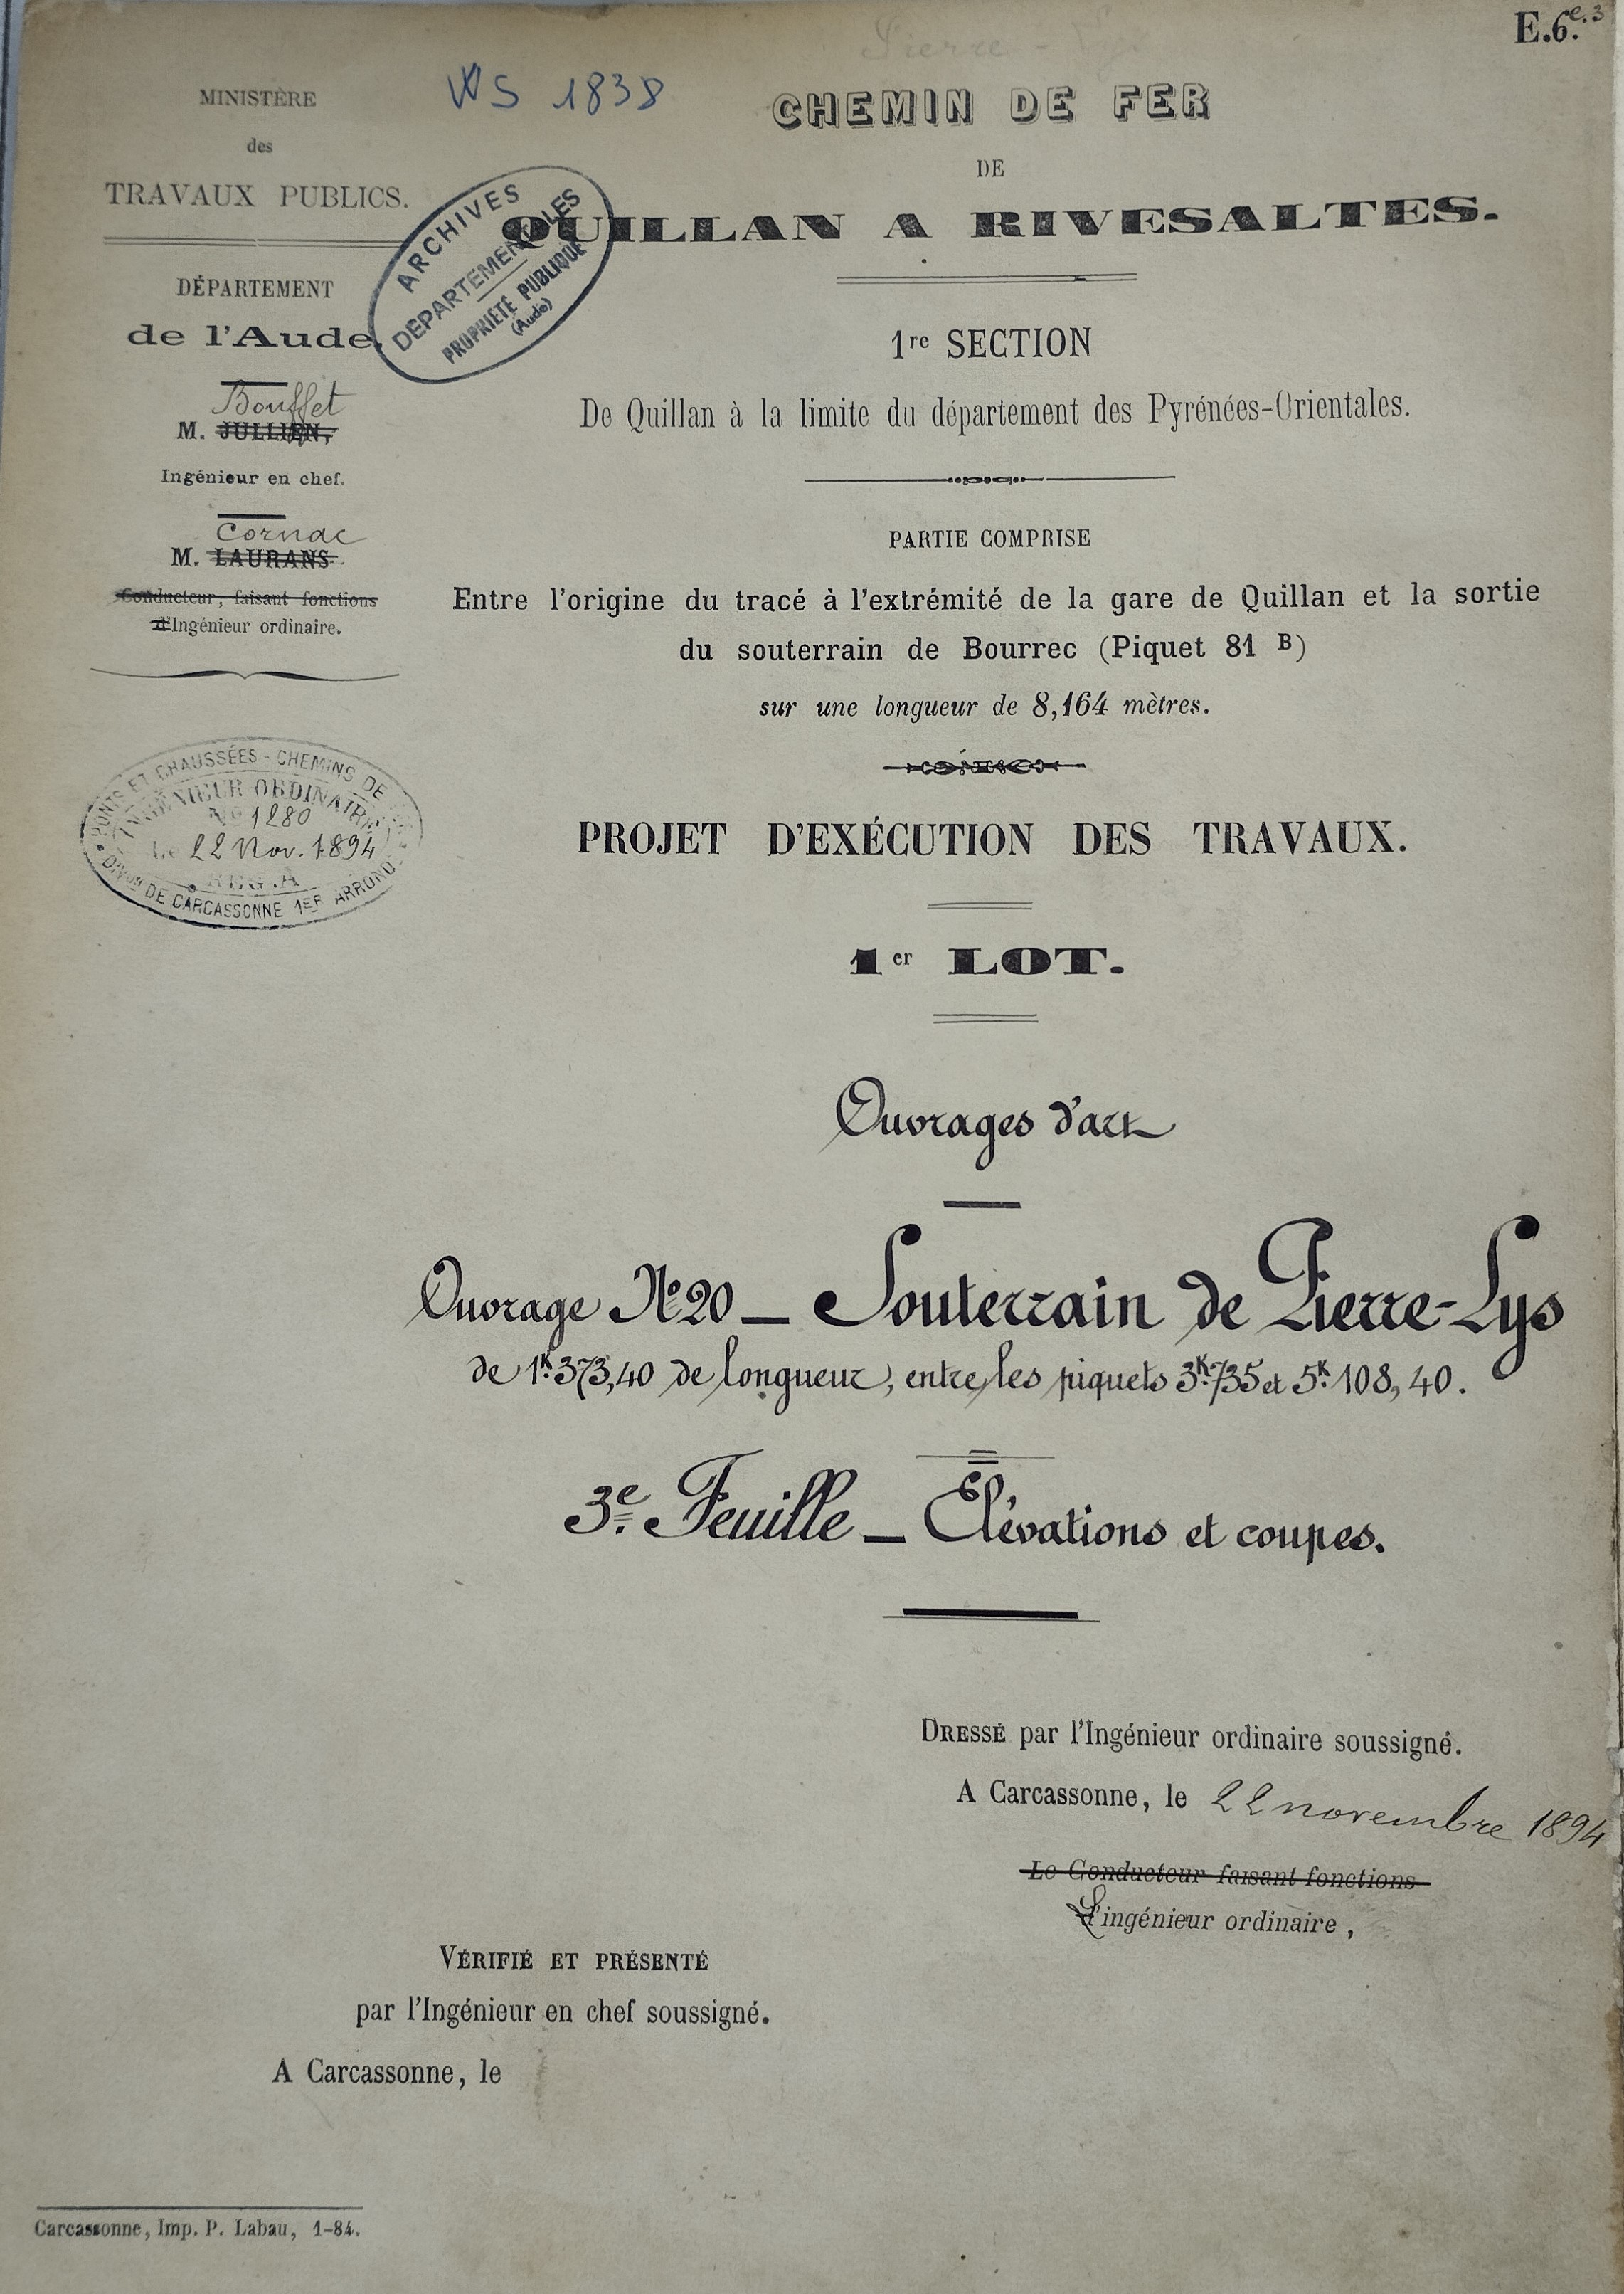 E.6.e.3
Pierre-Lys
WS 1838
MINISTÈRE
des
TRAVAUX PUBLICS.
DÉPARTEMENT
de l'Aude.
Bouffet
M. JULLIEN,
Ingénieur en chef.
Cornac
M. LAURANS
Conducteur, faisant fonctions
d'Ingénieur ordinaire.
ARCHIVES
DÉPARTEMENTALES
PROPRIÉTÉ PUBLIQUE
(Aude)
PONTS ET CHAUSSÉES - CHEMINS DE FER
INGÉNIEUR ORDINAIRE
No 1280
Le 22 Nov. 1894
REG. A
DIVon DE CARCASSONNE 1ER ARROND
CHEMIN DE FER
DE
QUILLAN A RIVESALTES.
1re SECTION
De Quillan à la limite du département des Pyrénées-Orientales.
PARTIE COMPRISE
Entre l'origine du tracé à l'extrémité de la gare de Quillan et la sortie
du souterrain de Bourrec (Piquet 81 B)
sur une longueur de 8,164 mètres.
PROJET D'EXÉCUTION DES TRAVAUX.
1er LOT.
Ouvrages d'art
Ouvrage No 20 — Souterrain de Pierre-Lys
de 1K.373,40 de longueur, entre les piquets 3K.735 et 5K.108,40.
3e. Feuille — Élévations et coupes.
DRESSÉ par l'Ingénieur ordinaire soussigné.
A Carcassonne, le 22 novembre 1894
Le Conducteur faisant fonctions
L'ingénieur ordinaire,
VÉRIFIÉ ET PRÉSENTÉ
par l'Ingénieur en chef soussigné.
A Carcassonne, le
Carcassonne, Imp. P. Labau, 1-84.